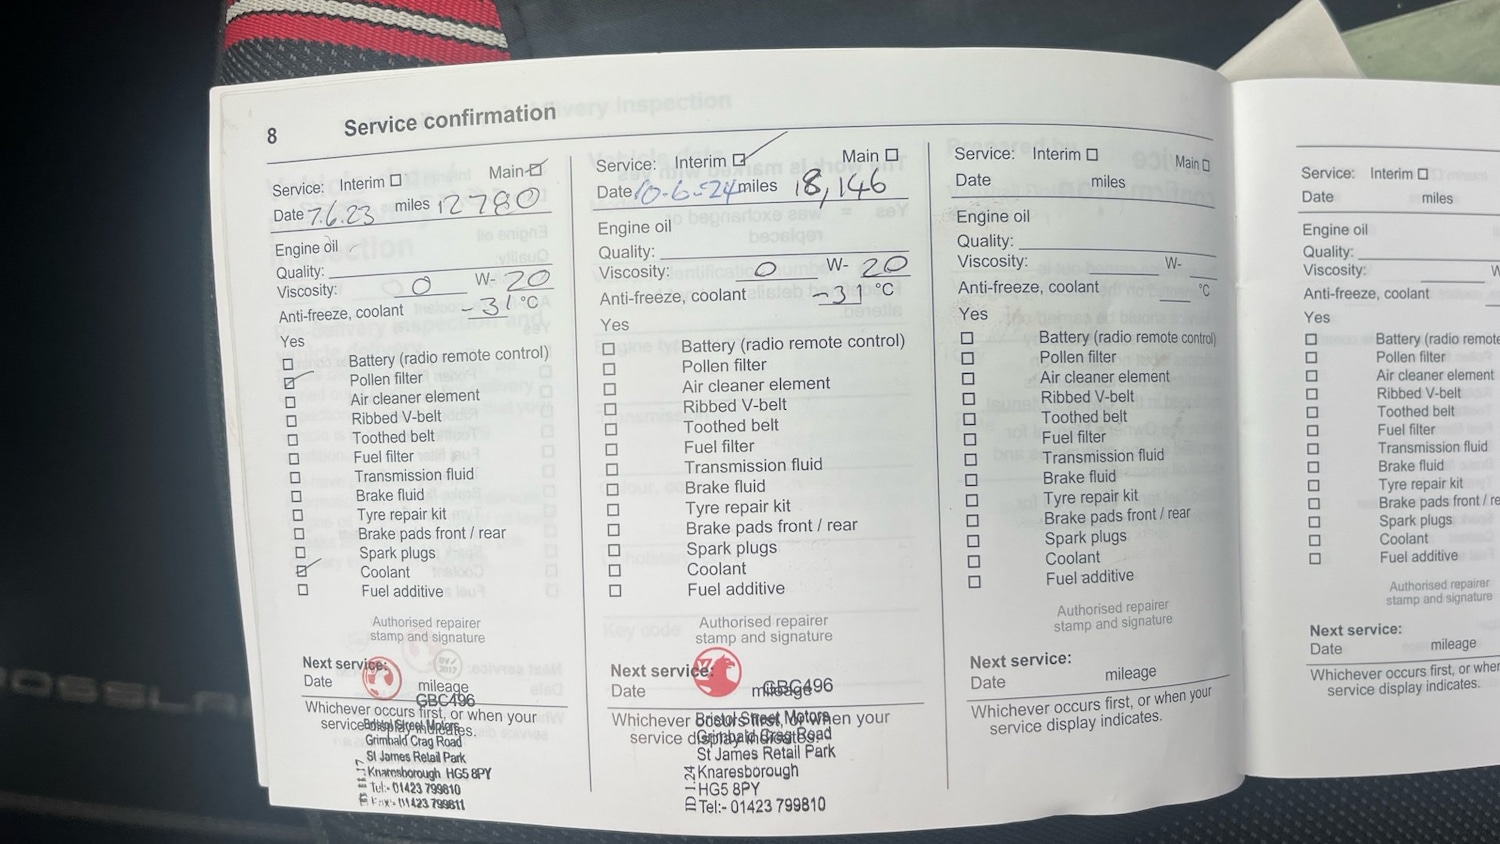 8 Service confirmation
Service: Interim Main
Date 7.6.23 miles 12780
Engine oil
Quality:
Viscosity: 0 W- 20
Anti-freeze, coolant -31 °C
Yes
Battery (radio remote control)
Pollen filter
Air cleaner element
Ribbed V-belt
Toothed belt
Fuel filter
Transmission fluid
Brake fluid
Tyre repair kit
Brake pads front / rear
Spark plugs
Coolant
Fuel additive
Authorised repairer
stamp and signature
Next service:
Date mileage
GBC496
Whichever occurs first, or when your
service display indicates.
Bristol Street Motors
Grimbald Crag Road
St James Retail Park
Knaresborough HG5 8PY
Tel:- 01423 799810
Fax:- 01423 799811
Service: Interim Main
Date 10-6-24 miles 18,146
Engine oil
Quality:
Viscosity: 0 W- 20
Anti-freeze, coolant -31 °C
Yes
Battery (radio remote control)
Pollen filter
Air cleaner element
Ribbed V-belt
Toothed belt
Fuel filter
Transmission fluid
Brake fluid
Tyre repair kit
Brake pads front / rear
Spark plugs
Coolant
Fuel additive
Authorised repairer
stamp and signature
Next service:
Date mileage
GBC496
Whichever occurs first, or when your
service display indicates.
Bristol Street Motors
Grimbald Crag Road
St James Retail Park
Knaresborough
HG5 8PY
Tel:- 01423 799810
ID 1.24
Service: Interim Main
Date miles
Engine oil
Quality:
Viscosity: W-
Anti-freeze, coolant °C
Yes
Battery (radio remote control)
Pollen filter
Air cleaner element
Ribbed V-belt
Toothed belt
Fuel filter
Transmission fluid
Brake fluid
Tyre repair kit
Brake pads front / rear
Spark plugs
Coolant
Fuel additive
Authorised repairer
stamp and signature
Next service:
Date mileage
Whichever occurs first, or when your
service display indicates.
Service: Interim
Date miles
Engine oil
Quality:
Viscosity: W
Anti-freeze, coolant
Yes
Battery (radio remote
Pollen filter
Air cleaner element
Ribbed V-belt
Toothed belt
Fuel filter
Transmission fluid
Brake fluid
Tyre repair kit
Brake pads front / re
Spark plugs
Coolant
Fuel additive
Authorised repairer
stamp and signature
Next service:
Date mileage
Whichever occurs first, or when
service display indicates.